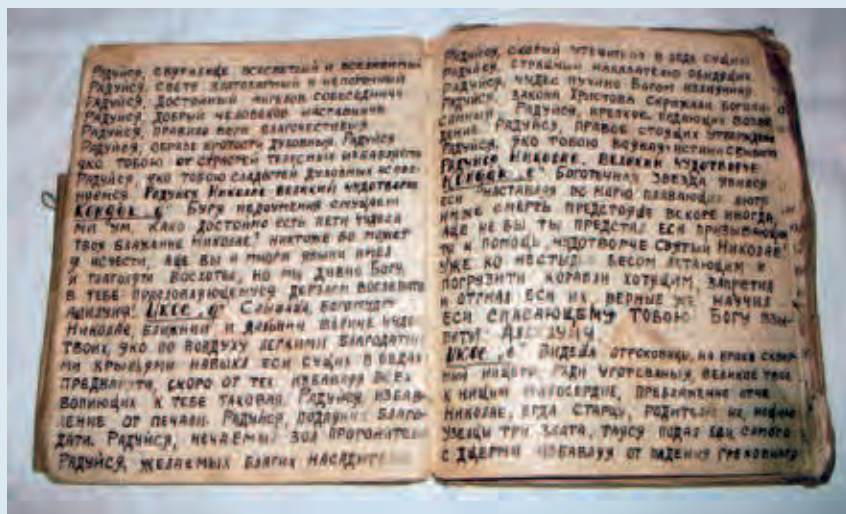 Радуйся,
Радуйся, свете златозарный и непорочный
Радуйся, достойный ангелов собеседниче
Радуйся, добрый человеков наставниче
Радуйся, правило веры благочестивыя
Радуйся, образе кротости духовныя. Радуйся
яко тобою от страстей телесных избавляемся
Радуйся, яко тобою сладостей духовных испол-
няемся. Радуйся Николае великий чудотворче
Кондак Буря недоумения смущает
ми ум, како достойно есть пети чудеса
твоя блаженне Николае! никтоже бо может
я исчести, аще бы и многи языки имел
и глаголати восхотел, но мы дивно Богу
в тебе прославляющемуся дерзаем воспевати
аллилуиа! Икос Богомудре
Николае, ближнии и дальнии величие чудес
твоих, яко по воздуху легкими благодатны-
ми крылами навыкл еси сущих в бедах
предваряти, скоро от тех избавляя всех
вопиющих к тебе таковая. Радуйся избав-
ление от печали. Радуйся, подаяние благо-
дати. Радуйся, нечаемых зол прогонителю
Радуйся, желаемых благих насадителю
Радуйся, скорый утешителю в беде сущих
Радуйся, страшный наказателю обидящих
Радуйся, чудес пучино Богом излиянная
Радуйся, закона Христова скрижале Богопи-
санный. Радуйся, крепкое падающих возве-
дение. Радуйся, правое стоящих утверждение
Радуйся, яко тобою всякая истина
Радуйся Николае, великий чудотворче
Кондак Боготечная звезда явился
еси наставляя по морю плавающих люто
имже смерть предстояще вскоре иногда,
аще не бы ты предстал еси призывающим
тя в помощь, чудотворче святый Николае!
уже бо нестыдно бесом летающим и
погрузити корабли хотящим, запретил
и отгнал еси их, верные же научил
еси спасающему тобою Богу взы-
вати Аллилуиа
Икос Видеша отроковицы, на брак сквер-
ный нищеты ради уготованныя, великое твое
к нищим милосердие, преблаженне отче
Николае, егда старцу, родителю их, нощию
узельцы три злата, таяся подал еси самого
с дщерми избавляя от падения греховнаго